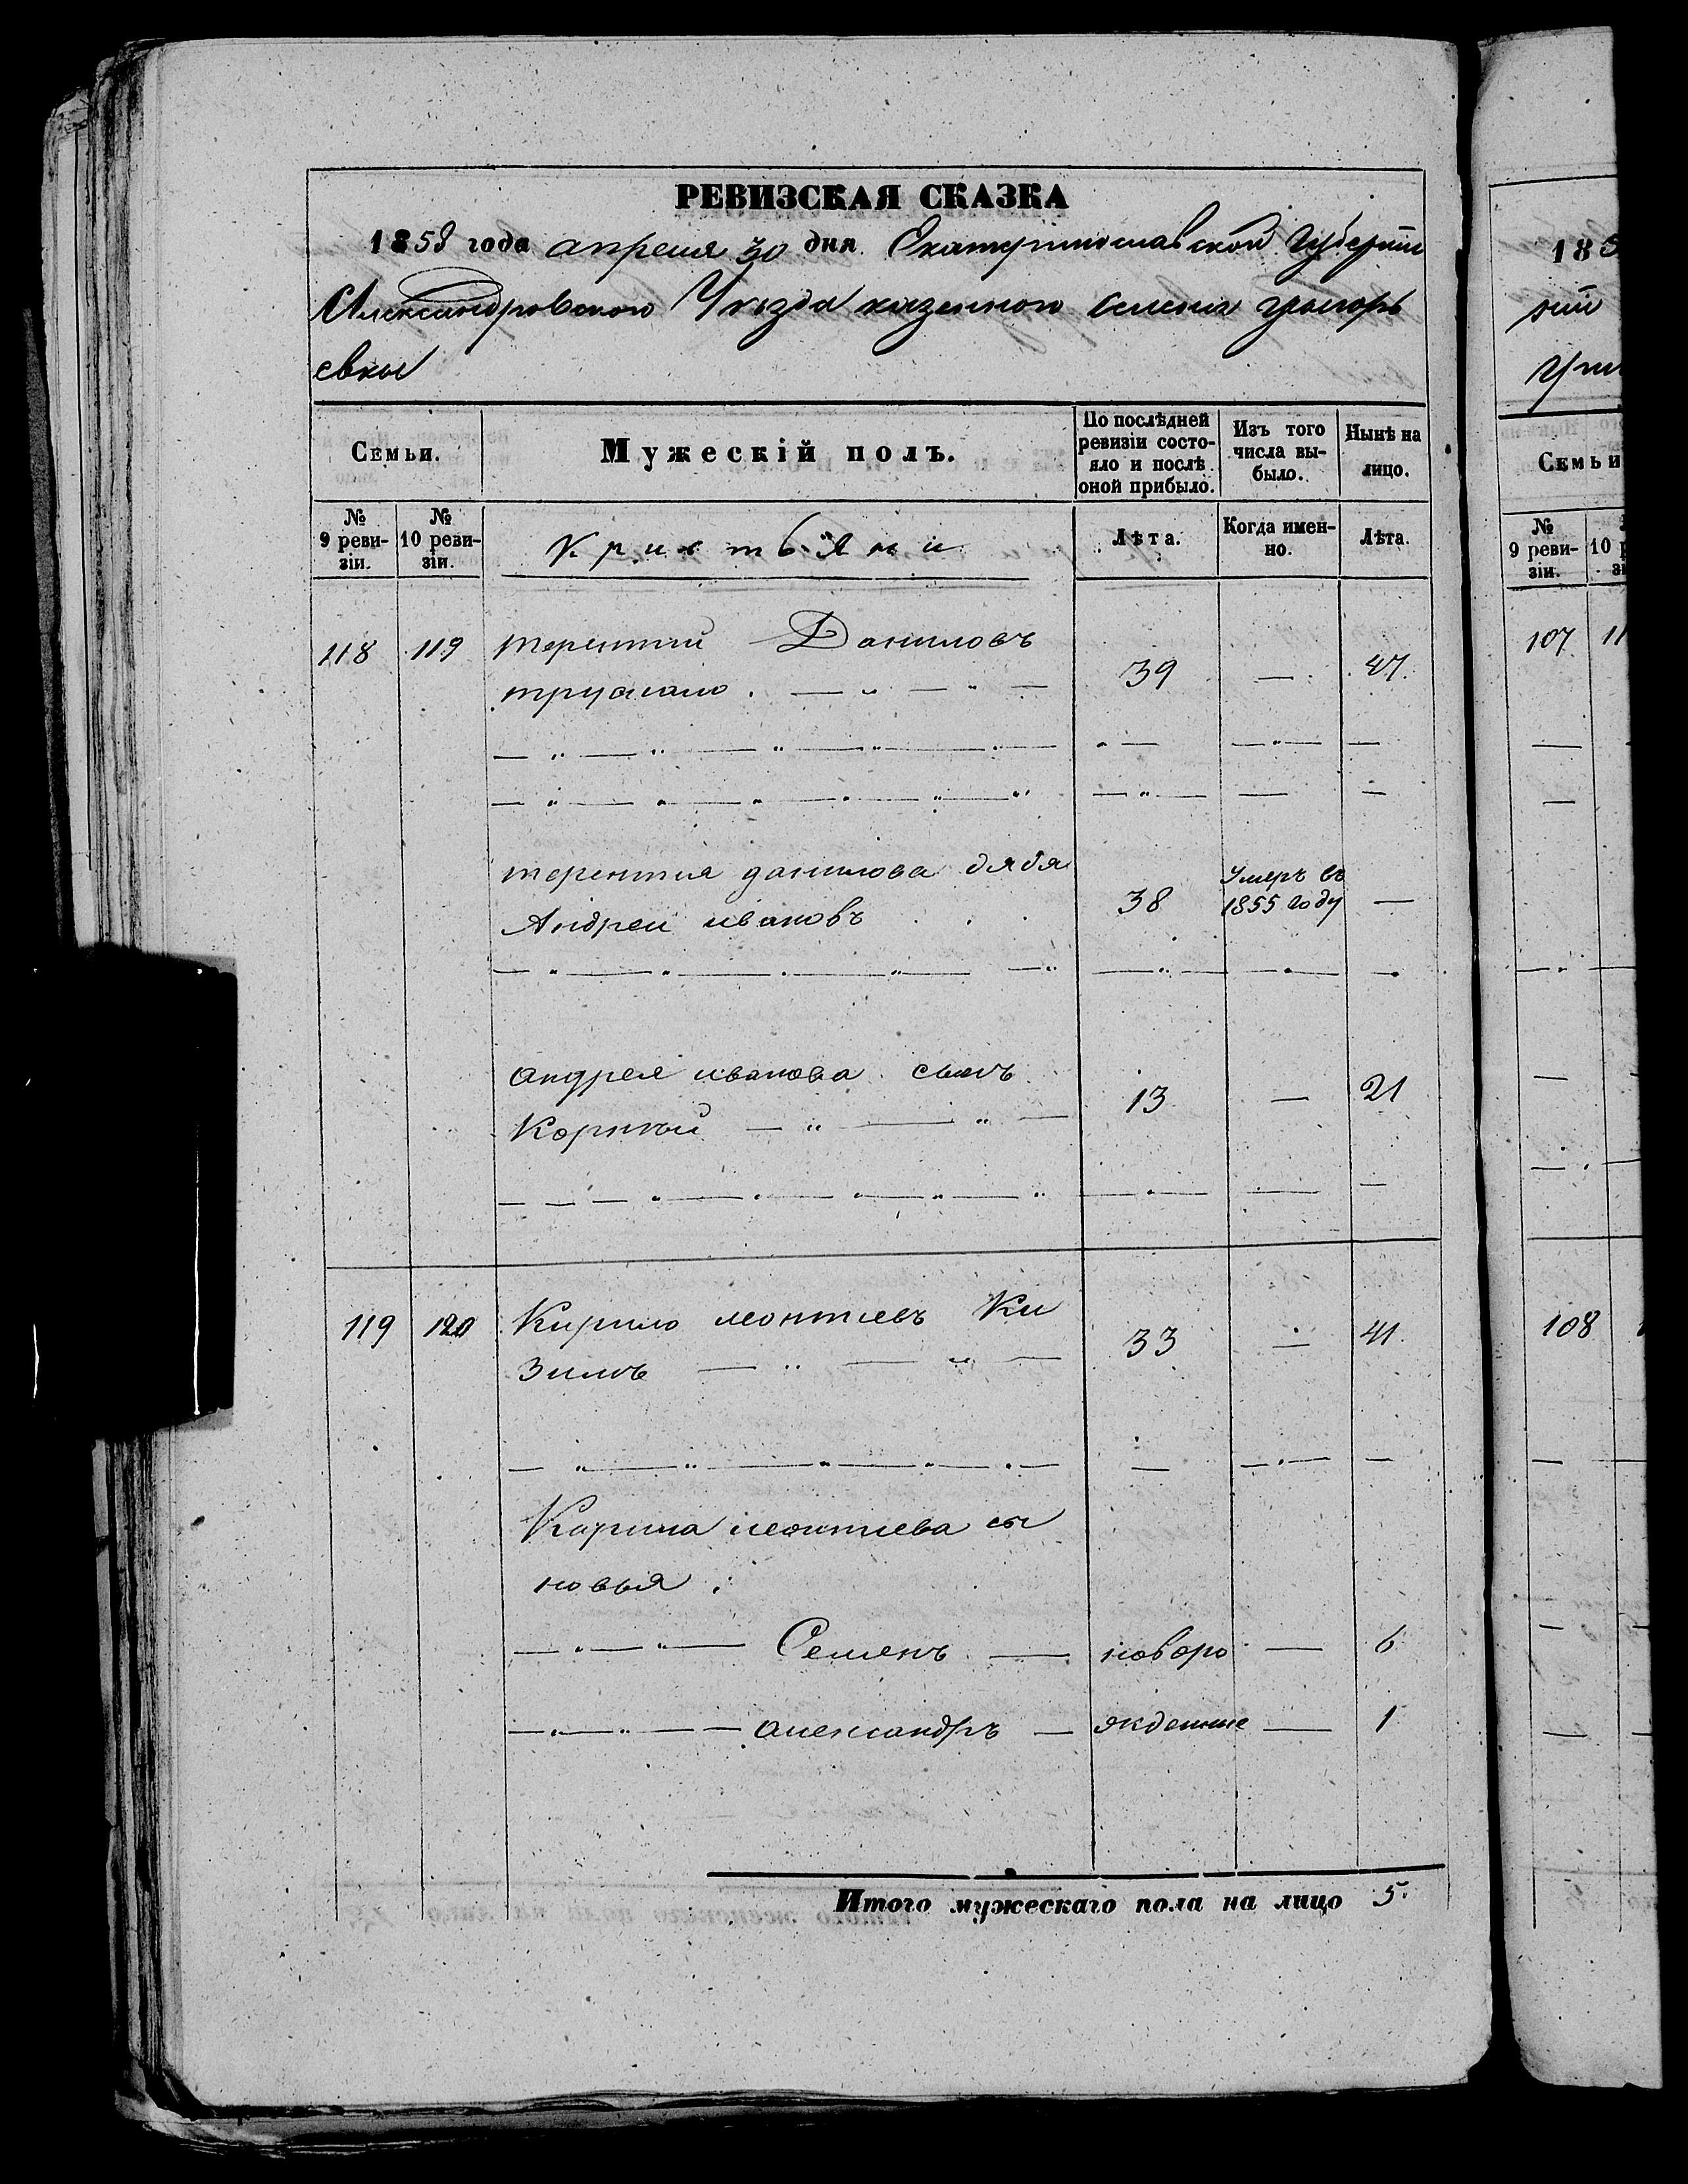 РЕВИЗСКАЯ СКАЗКА
1858 года апреля 30 дня Екатеринославской Губернии
Александровского Уезда казенного селения Григорь
евки
Семьи. Мужескій полъ. По послѣдней ревизіи состояло и послѣ оной прибыло. Изъ того числа выбыло. Нынѣ на лицо.
№ 9 ревизіи. № 10 ревизіи. Кристьяни Лѣта. Когда именно. Лѣта.
118 119 терентий Даниловъ
39 — 47
терентия данилова дядя
Андреи ивановъ 38 Умеръ въ 1855 году —
андрея иванова сынъ
Корнѣй 13 — 21
119 120 Кирило леонтиевъ Ки
зимъ 33 — 41
Кирила леонтиева сы
новья:
Семенъ — новоро — 6
александръ — жденные — 1
Итого мужескаго пола на лицо 5.
185
Семьи
№ 9 ревизіи. 10
107 11
108